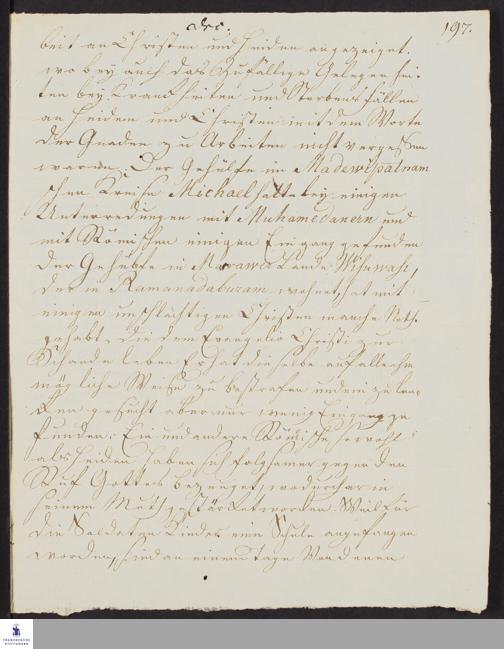 197.
beit an Christen und Heiden angezeiget.
wobey auch das Zufällige Gelegenhei-
ten bey Kranckheiten und Sterbensfällen
an Heiden und Christen mit dem Worte
der Gnaden zu Arbeiten nicht vergessen
worden. Der Gehülfe im Madewipatnam
schen Kreise Michael hatte bey einigen
Unterredungen mit Muhamedanern und
mit Römischen einigen Eingang gefunden
der Gehülfe in Marawer Lande Wisuwasi,
der in Ramanadaburam wohnet, hat mit
einigen unschlächtigen Christen manche Noth
gehabt, die dem Evangelio Christi zur
Schande leben Er hat dieselbe auf allerhn
mögliche Weise zu bestrafen und zu len-
cken gesucht aber nur wenig Eingang ge
funden. Ein und andere Römische sowohl
als Heiden haben sich folgsamer gegen den
Ruf Gottes bezeuget, wodurch er in
seinem Muth gestärket worden. Weil für
die Soldaten Kinder eine Schule angefangen
worden, sind an einem Tage von denen
FRANCKESCHE STIFTUNGEN